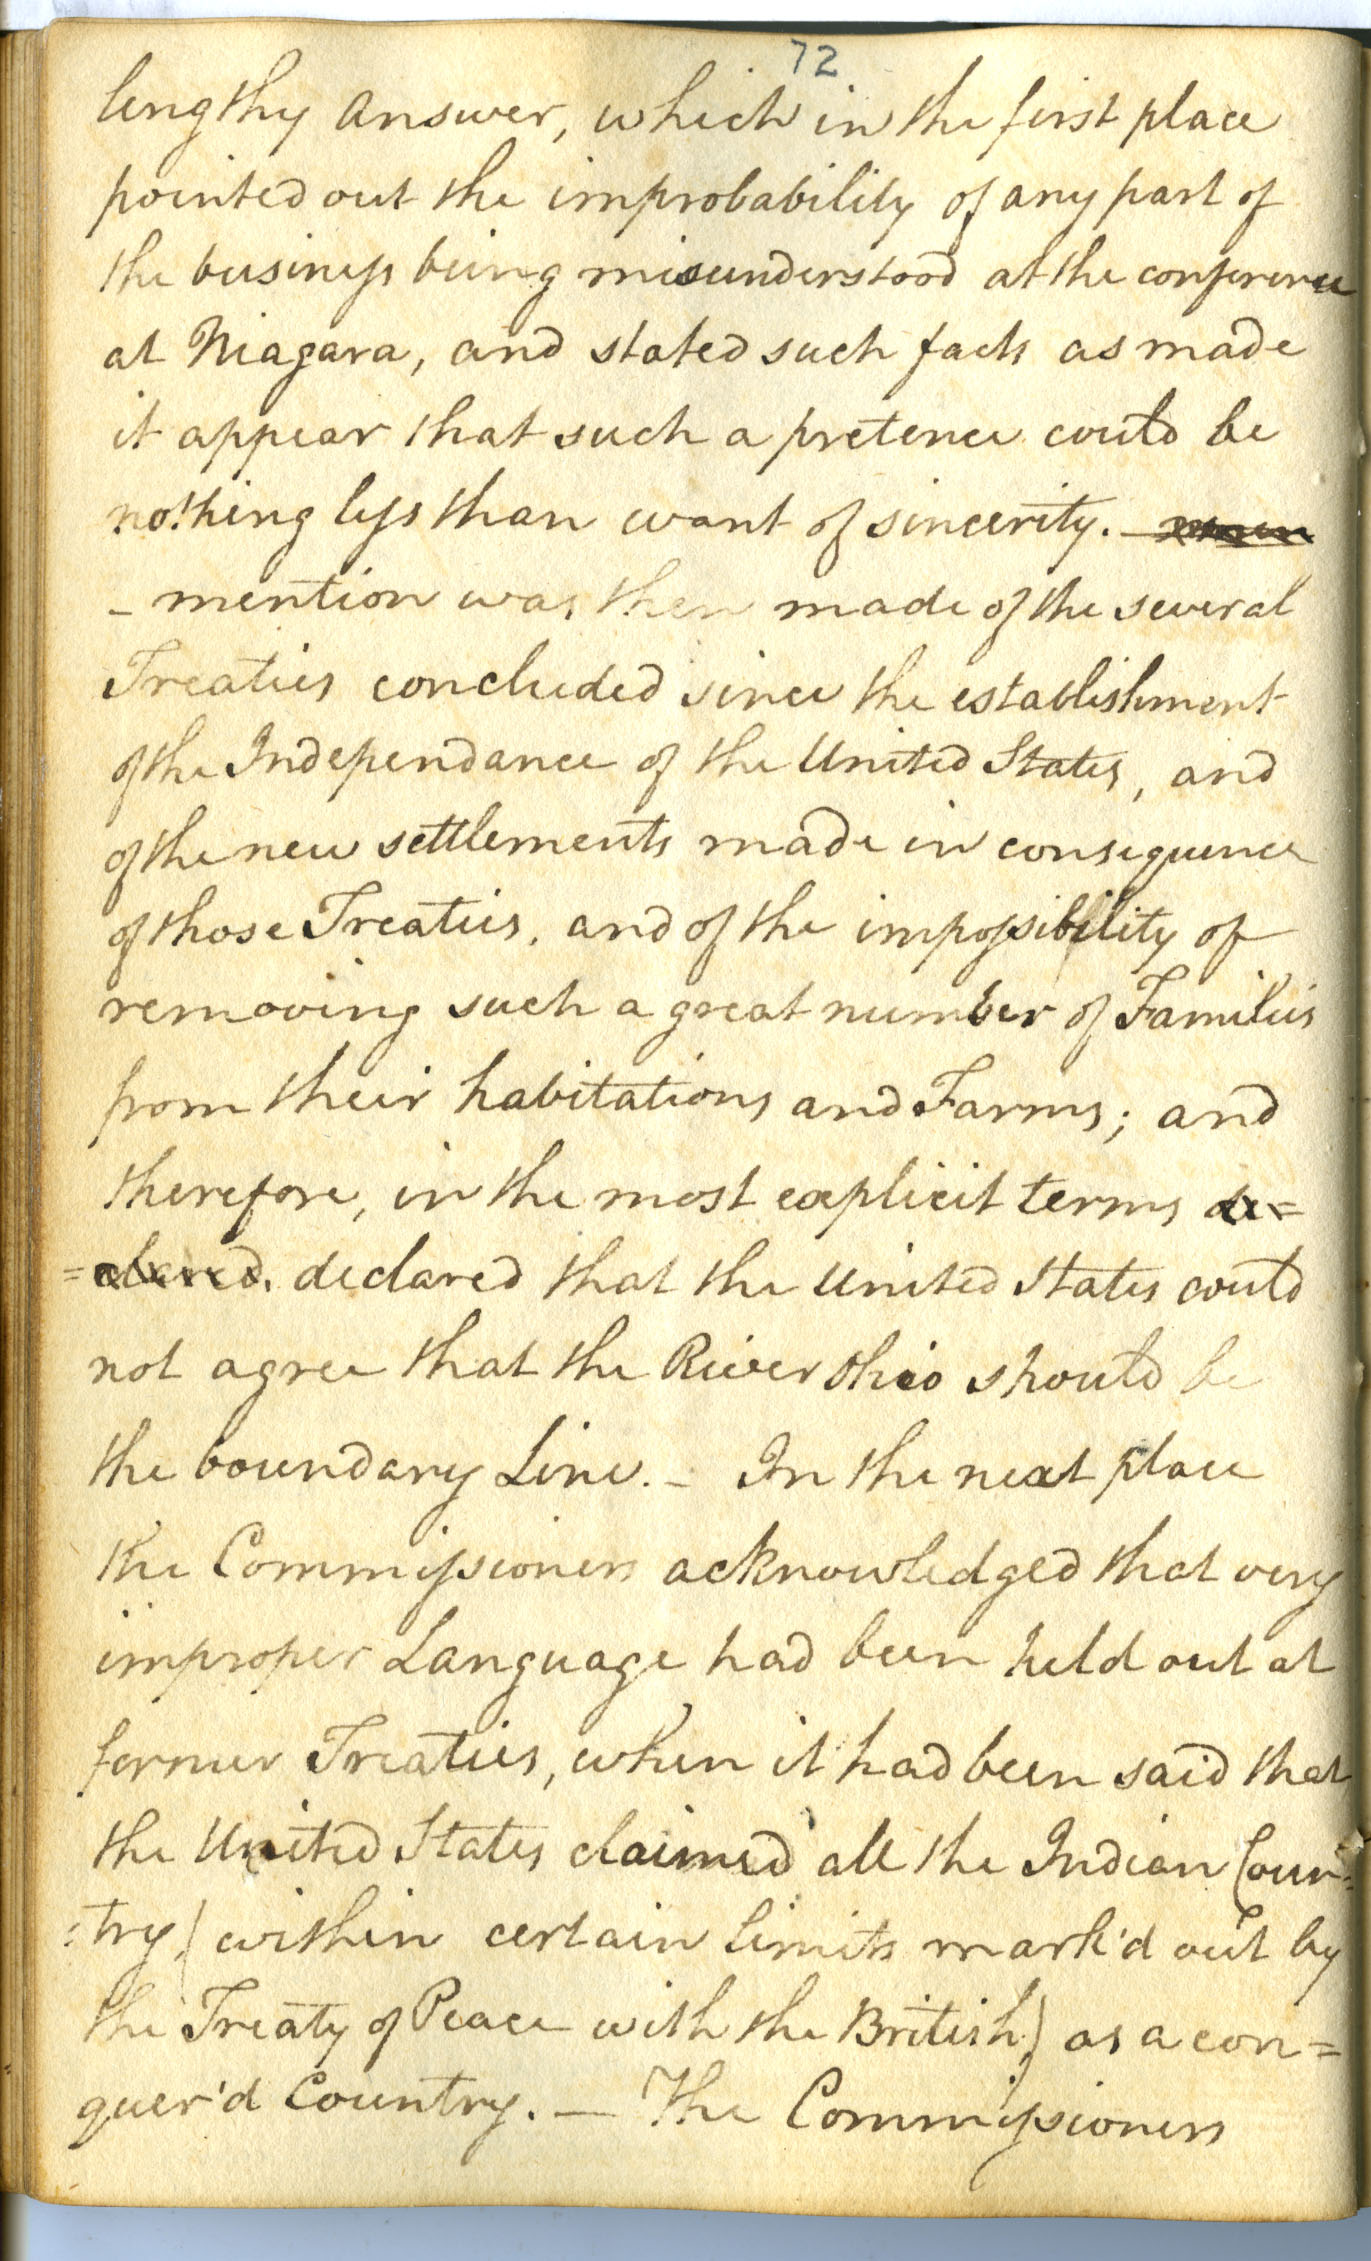 72
lengthy answer, which in the first place
pointed out the improbability of any part of
the business being misunderstood at the conference
at Niagara, and stated such facts as made
it appear that such a pretence could be
nothing less than want of sincerity. –
– mention was then made of the several
Treaties concluded since the establishment
of the Independance of the United States, and
of the new settlements made in consequence
of those Treaties, and of the impossibility of
removing such a great number of Families
from their habitations and Farms; and
therefore, in the most explicit terms de=
=clared. declared that the United States could
not agree that the River Ohio should be
the boundary Line. – In the next place
the Commissioners acknowledged that very
improper Language had been held out at
former Treaties, when it had been said that
the United States claimed all the Indian Coun=
=try, (within certain limits mark'd out by
the Treaty of Peace with the British) as a con=
quer'd Country. — The Commissioners